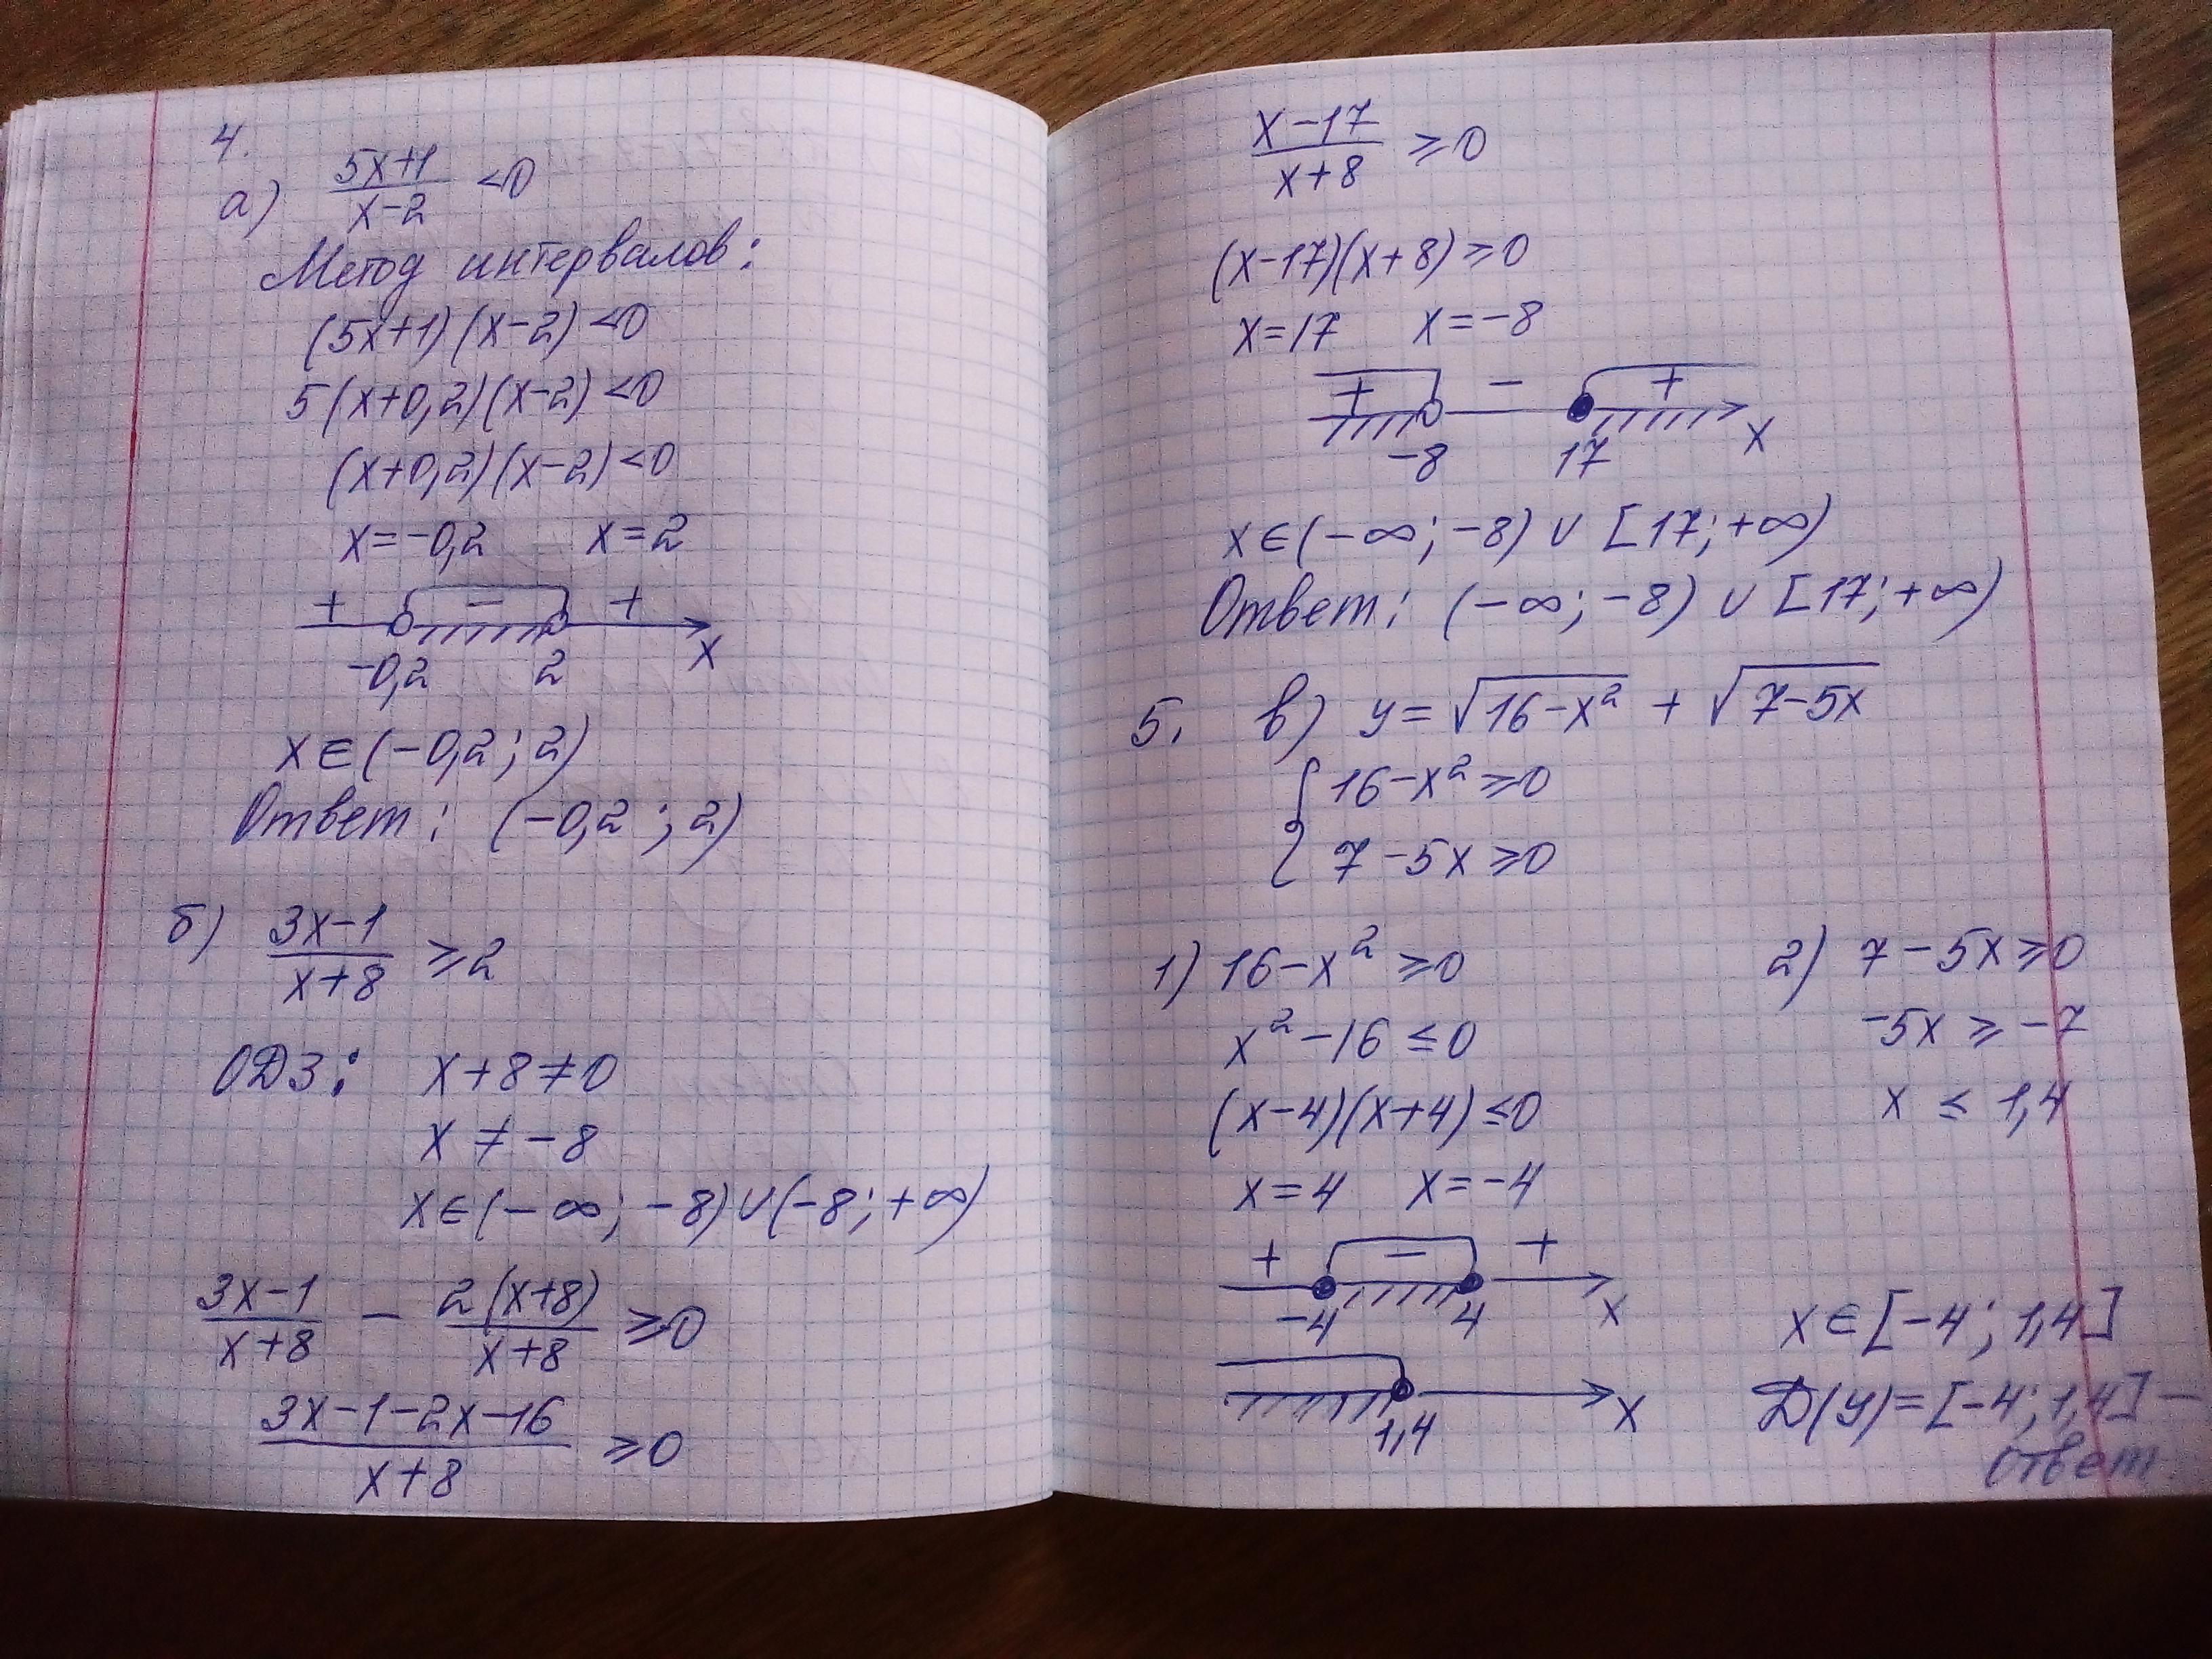 4.
а) (5x+1)/(x-2) <0
Метод интервалов:
(5x+1)(x-2)<0
5(x+0,2)(x-2)<0
(x+0,2)(x-2)<0
x=-0,2 x=2
+ - +
-0,2 2 x
x∈(-0,2; 2)
Ответ: (-0,2; 2)
б) (3x-1)/(x+8) ≥2
ОДЗ: x+8≠0
x ≠ -8
x∈(-∞; -8)∪(-8; +∞)
(3x-1)/(x+8) - 2(x+8)/(x+8) ≥0
(3x-1-2x-16)/(x+8) ≥0
(x-17)/(x+8) ≥0
(x-17)(x+8)≥0
x=17 x=-8
+ - +
-8 17 x
x∈(-∞; -8) ∪ [17; +∞)
Ответ: (-∞; -8) ∪ [17; +∞)
5. в) y=√(16-x²) + √(7-5x)
{ 16-x²≥0
7-5x≥0
1) 16-x²≥0
x²-16≤0
(x-4)(x+4)≤0
x=4 x=-4
+ - +
-4 4 x
1,4 x
2) 7-5x≥0
-5x ≥ -7
x ≤ 1,4
x∈[-4; 1,4]
D(y)=[-4; 1,4] -
ответ